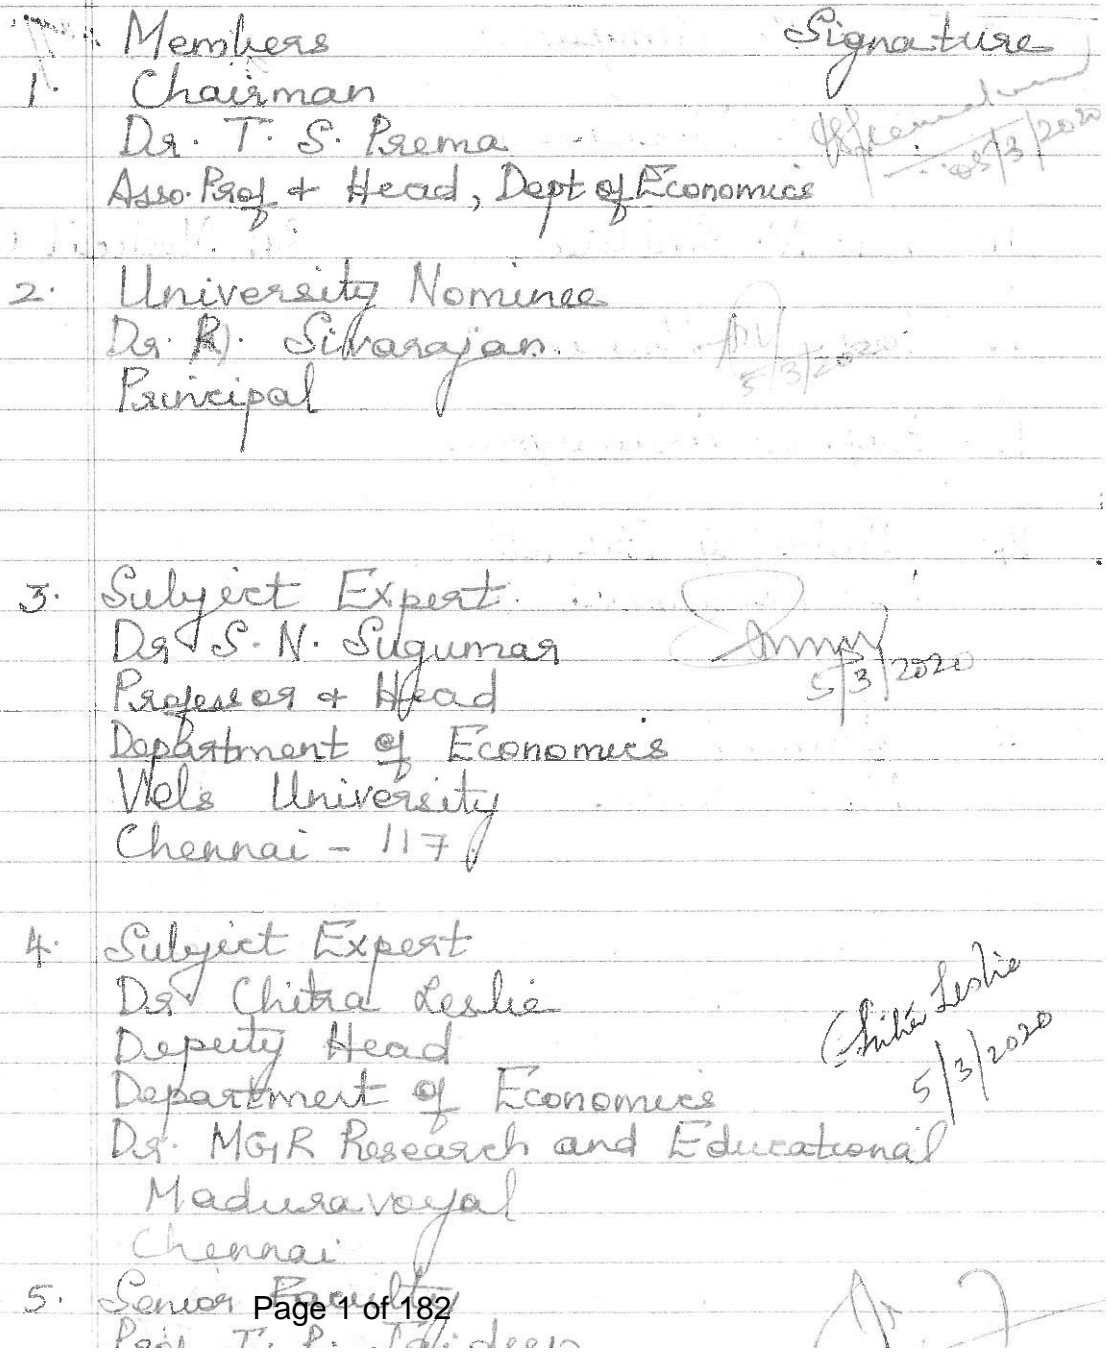 Members Signature
1. Chairman
Dr. T. S. Prema
05/3/2020
Asso. Prof & Head, Dept of Economics
2. University Nominee
Dr. R. Sivarajan
5/3/2020
Principal
3. Subject Expert
Dr S. N. Sugumar
5/3/2020
Professor & Head
Department of Economics
Vels University
Chennai - 117
4. Subject Expert
Dr Chitra Leslie
Chitra Leslie
Deputy Head
5/3/2020
Department of Economics
Dr. MGR Research and Educational
Maduravoyal
Chennai
5. Senior Faculty
Page 1 of 182
Prof. T.